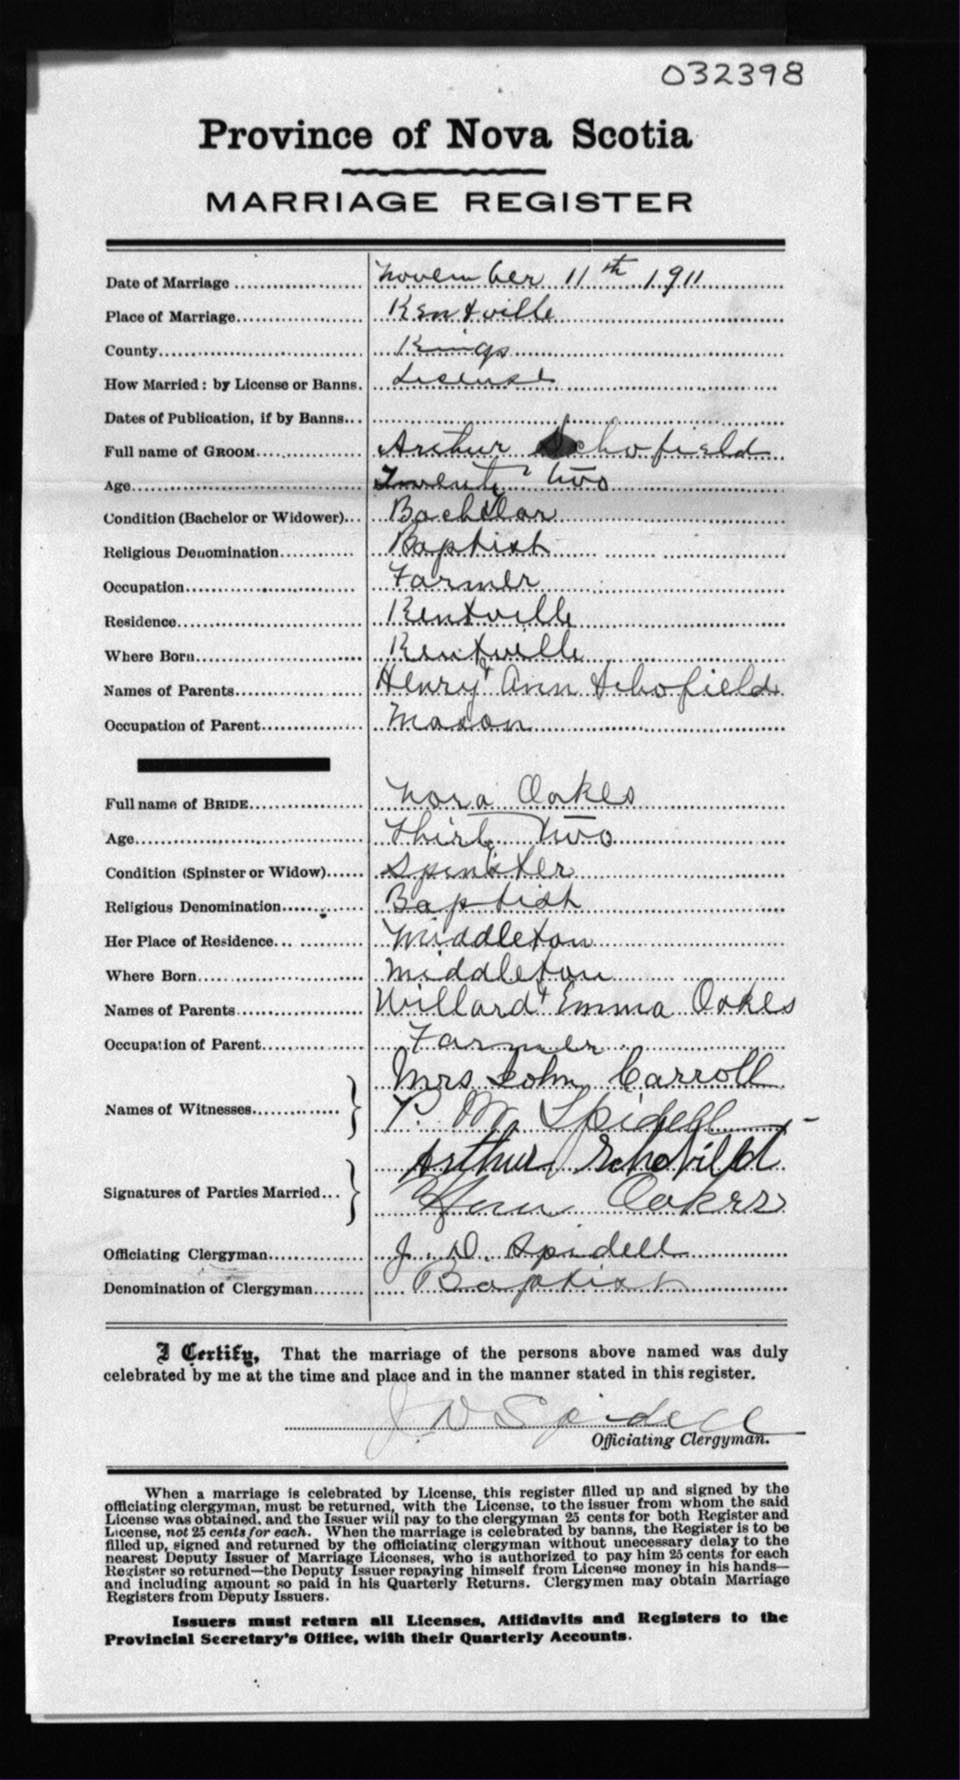 032398
Province of Nova Scotia
MARRIAGE REGISTER
Date of Marriage November 11th 1911
Place of Marriage Kentville
County Kings
How Married: by License or Banns. License
Dates of Publication, if by Banns
Full name of GROOM Arthur Schofield
Age Twenty two
Condition (Bachelor or Widower) Bachelor
Religious Denomination Baptist
Occupation Farmer
Residence Kentville
Where Born Kentville
Names of Parents Henry & Ann Schofield
Occupation of Parent Mason
Full name of BRIDE Nora Oakes
Age Thirty two
Condition (Spinster or Widow) Spinster
Religious Denomination Baptist
Her Place of Residence Middleton
Where Born Middleton
Names of Parents Willard & Emma Oakes
Occupation of Parent Farmer
Mrs John Carroll
Names of Witnesses } P. M. Spidell
Arthur Schofield
Signatures of Parties Married } Oakes
Officiating Clergyman J. D. Spidell
Denomination of Clergyman Baptist
I Certify, That the marriage of the persons above named was duly
celebrated by me at the time and place and in the manner stated in this register.
J D Spidell
Officiating Clergyman.
When a marriage is celebrated by License, this register filled up and signed by the
officiating clergyman, must be returned, with the License, to the issuer from whom the said
License was obtained, and the Issuer will pay to the clergyman 25 cents for both Register and
License, not 25 cents for each. When the marriage is celebrated by banns, the Register is to be
filled up, signed and returned by the officiating clergyman without unnecessary delay to the
nearest Deputy Issuer of Marriage Licenses, who is authorized to pay him 25 cents for each
Register so returned—the Deputy Issuer repaying himself from License money in his hands—
and including amount so paid in his Quarterly Returns. Clergymen may obtain Marriage
Registers from Deputy Issuers.
Issuers must return all Licenses, Affidavits and Registers to the
Provincial Secretary's Office, with their Quarterly Accounts.